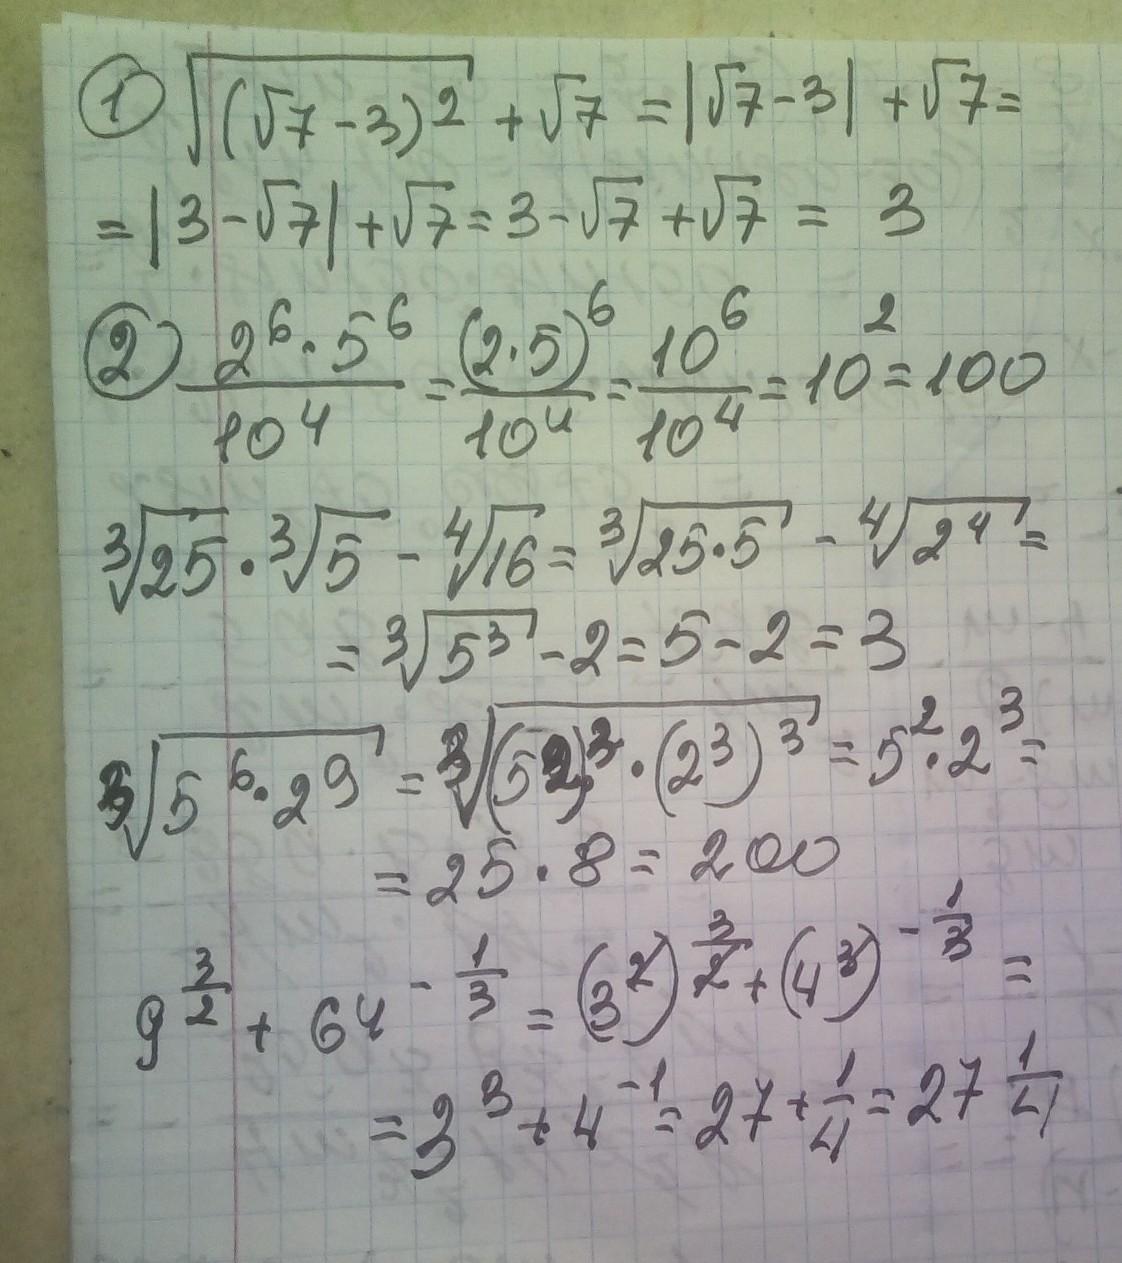 ① √((√7 - 3)²) + √7 = |√7 - 3| + √7 =
= |3 - √7| + √7 = 3 - √7 + √7 = 3
② (2⁶ · 5⁶)/10⁴ = (2·5)⁶/10⁴ = 10⁶/10⁴ = 10² = 100
∛25 · ∛5 - ∜16 = ∛(25·5) - ∜(2⁴) =
= ∛(5³) - 2 = 5 - 2 = 3
∛(5⁶ · 2⁹) = ∛((5²)³ · (2³)³) = 5² · 2³ =
= 25 · 8 = 200
9^(3/2) + 64^(-1/3) = (3²)^(3/2) + (4³)^(-1/3) =
= 3³ + 4⁻¹ = 27 + 1/4 = 27 1/4